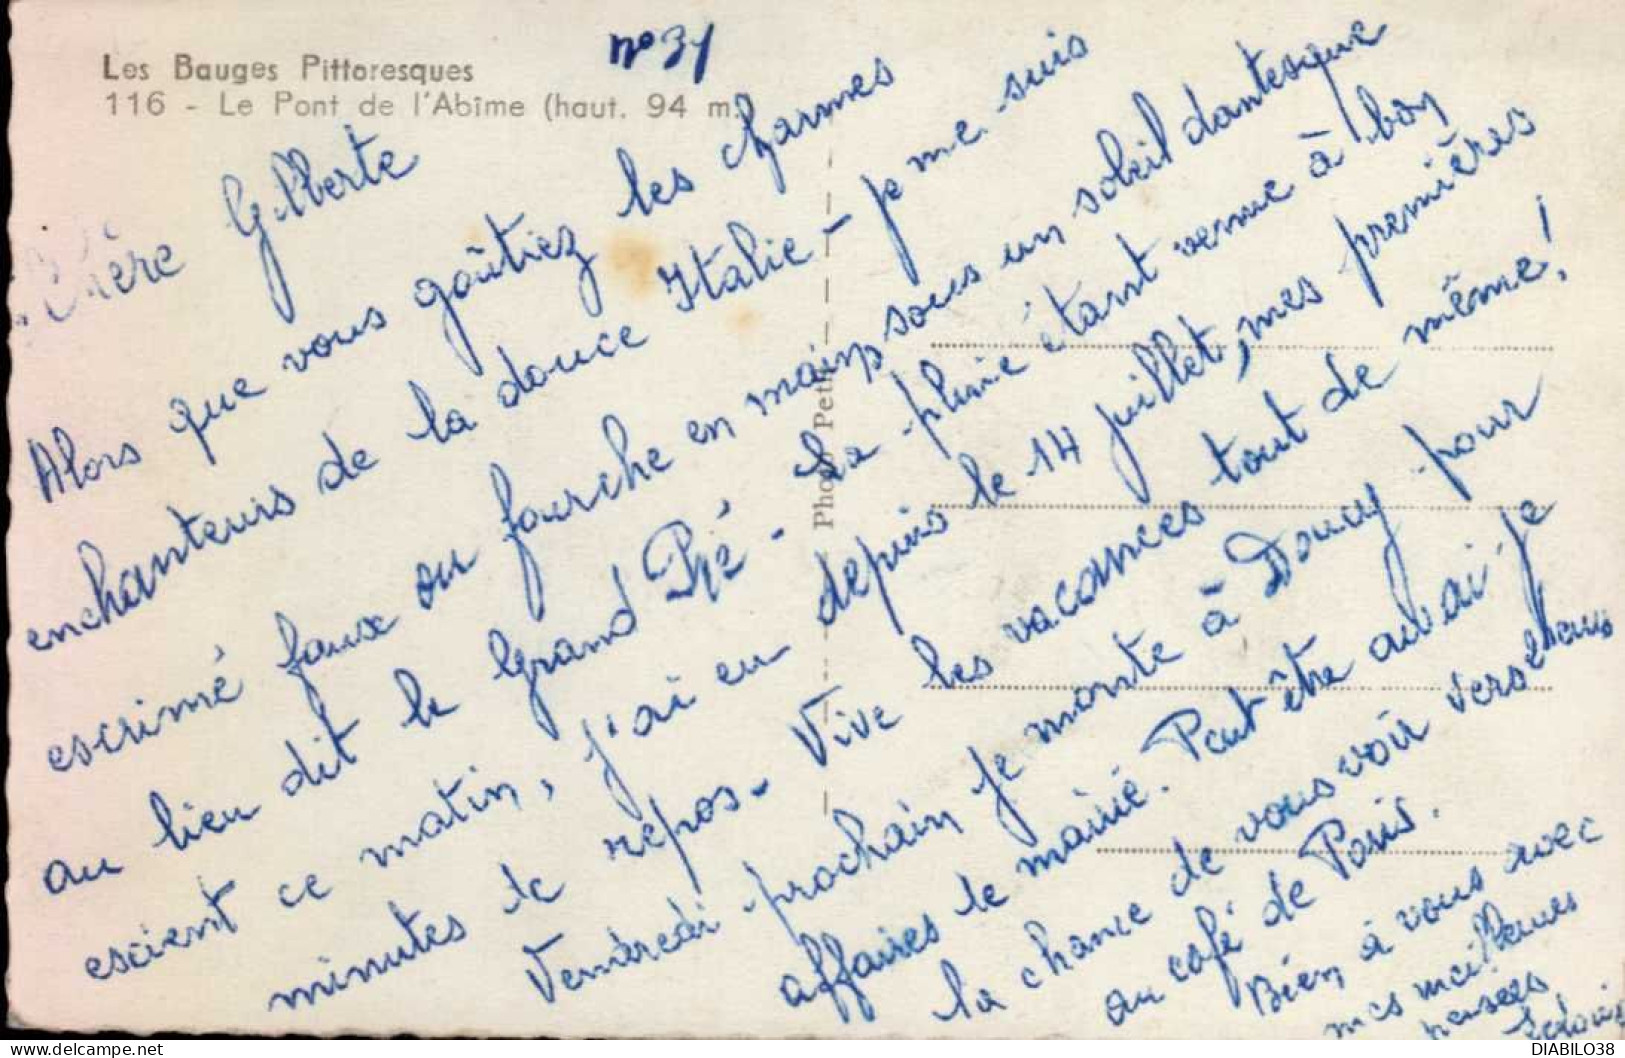 N° 31
Les Bauges Pittoresques
116 - Le Pont de l'Abîme (haut. 94 m.)
Photo Petit
Chère Gilberte
Alors que vous goûtiez les charmes
enchanteurs de la douce Italie - je me suis
escrimé faux ou fourche en mains sous un soleil dantesque
au lieu dit le Grand Pré - La pluie étant venue à bon
escient ce matin, j'ai eu depuis le 14 juillet, mes premières
minutes de repos - Vive les vacances tout de même !
Vendredi prochain je monte à Doucy pour
affaires de mairie. Peut être aurai-je
la chance de vous voir vers
au café de Paris.
Bien à vous avec
mes meilleures
pensées
DIABILO38